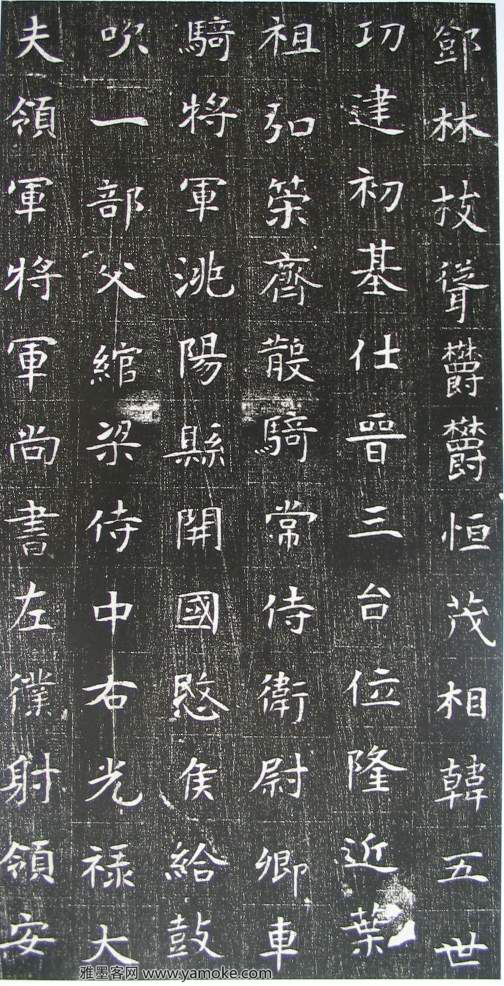 鄧林枝聳鬱鬱恒茂相韓五世
功建初基仕晉三台位隆近葉
祖弘策齊散騎常侍衛尉卿車
騎將軍洮陽縣開國愍侯給鼓
吹一部父綰梁侍中右光祿大
夫領軍將軍尚書左僕射領安
雅墨客网 www.yamoke.com